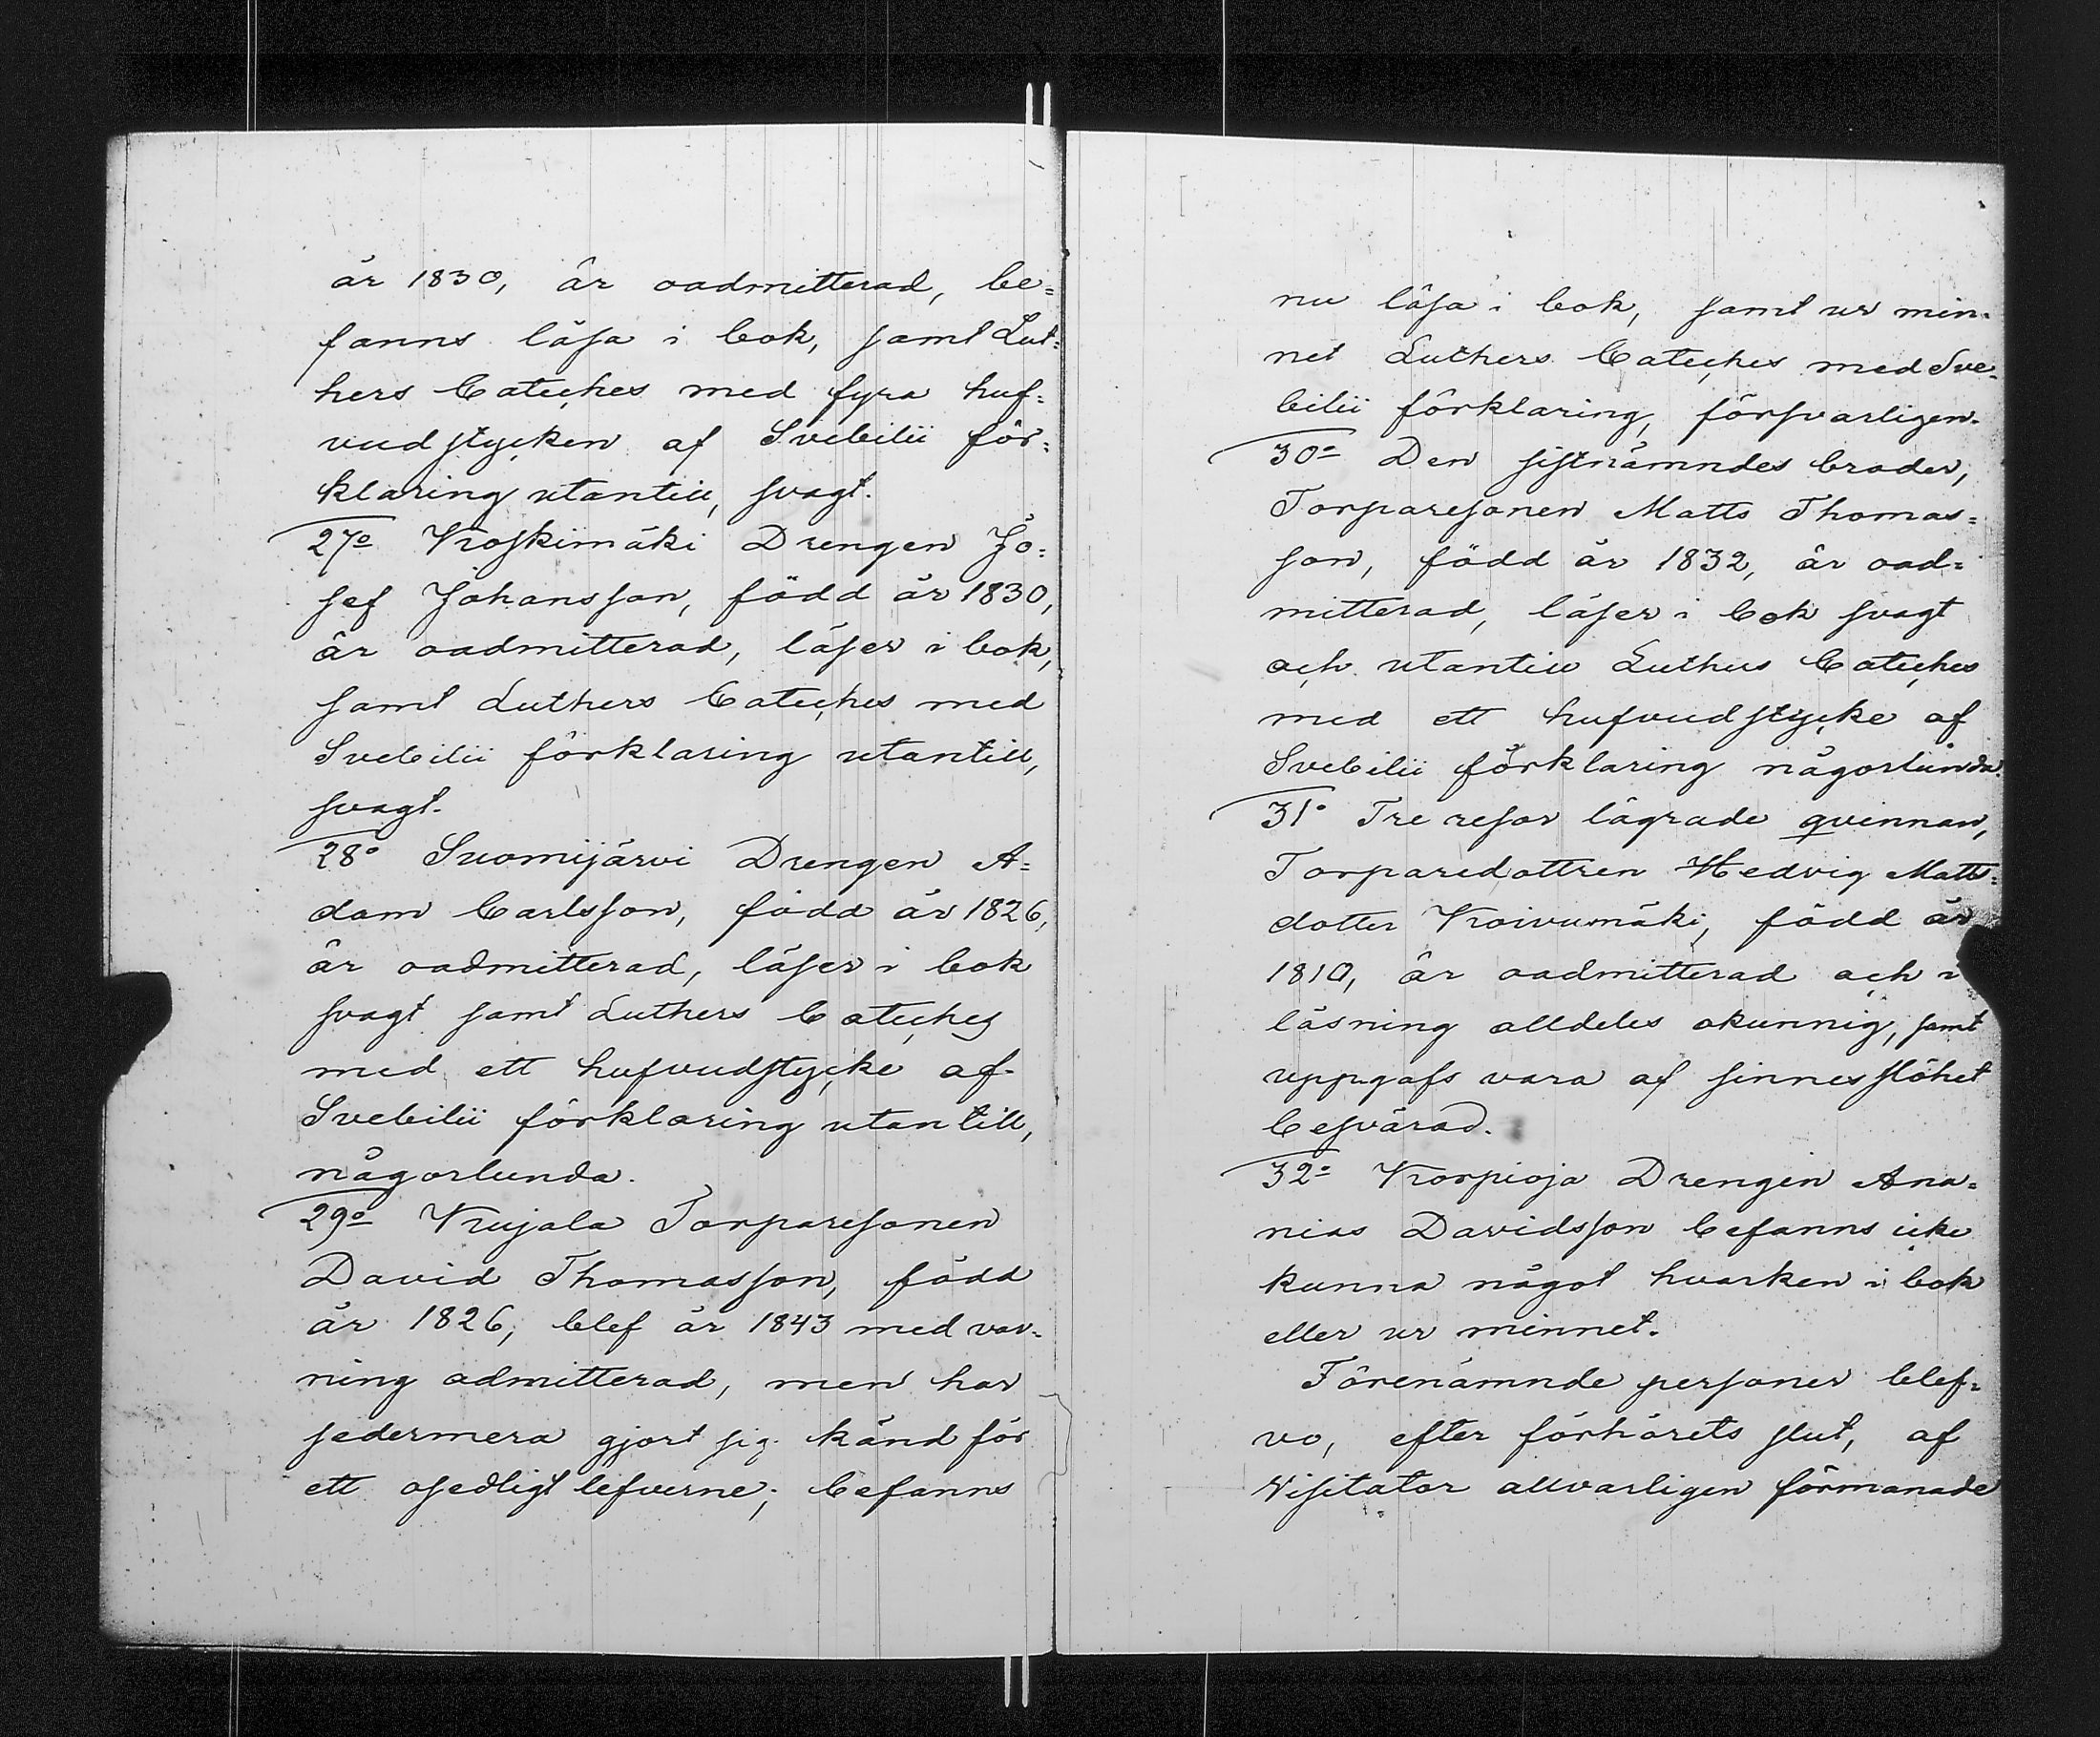 år 1830, är oadmitterad, be=
fanns läsa i bok, samt Lut=
hers Cateches med fyra huf=
vudstycken af Svebilii för=
klaring utantill, svagt.
27o Koskimäki Drengen Jo=
sef Johansson, född år 1830,
är oadmitterad, läser i bok,
samt Luthers Cateches med
Svebilii förklaring utantill,
svagt.
28o Suomijärvi Drengen A=
dam Carlsson, född år 1826,
är oadmitterad, läser i bok
svagt samt Luthers Cateches
med ett hufvudstycke af
Svebilii förklaring utantill,
någorlunda.
29o Kujala Torparesonen
David Thomasson, född
år 1826, blef år 1843 med var=
ning admitterad, men har
sedermera gjort sig känd för
ett osedligt lefverne; befanns
nu läsa i bok, samt ur min=
net Luthers Cateches med Sve=
bilii förklaring, försvarligen.
30o Den sistnämndes broder,
Torparesonen Matts Thomas=
son, född år 1832, är oad=
mitterad, läser i bok svagt
och utantill Luthers Cateches
med ett hufvudstycke af
Svebilii förklaring någorlunda.
31o Tre resor lägrade qvinnan,
Torparedottren Hedvig Matts=
dotter Koivumäki, född år
1810, är oadmitterad och i
läsning alldeles okunnig, samt
uppgafs vara af sinnesslöhet
besvärad.
32o Korpioja Drengen Ana=
nias Davidsson befanns icke
kunna något hvarken i bok
eller ur minnet.
Förenämnde personer blef=
vo, efter förhörets slut, af
Visitator allvarligen förmanade